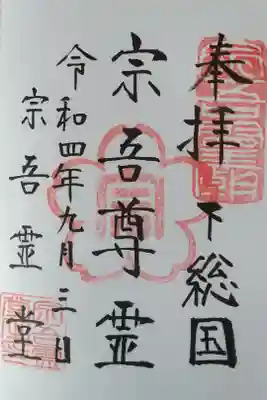 奉拝 下総国
宗吾尊霊
令和四年九月三日
宗吾霊堂